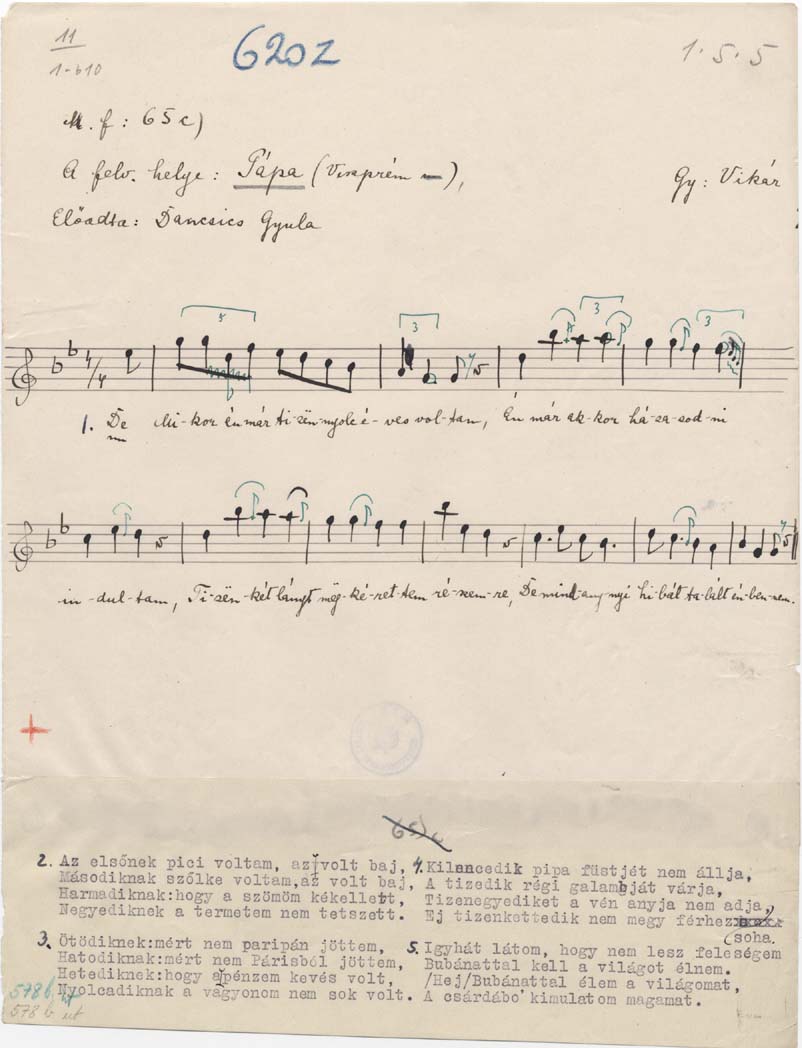 11
1-b10
620z
1.5.5
M. f: 65c)
A felv. helye: Pápa (Veszprém —), Gy: Vikár
Előadta: Dancsics Gyula
5 3 3 3
4/4
1. De Mi-kor én már ti-zën-nyolc é-ves vol-tam, Én már ak-kor há-za-sod-ni
in-dul-tam, Ti-zën-két lányt mëg-ké-ret-tem ré-szem-re, De mind any-nyi hi-bát ta-lált én-ben-nem.
65/c
2. Az elsőnek pici voltam, az volt baj,
Másodiknak szőlke voltam,az volt baj,
Harmadiknak:hogy a szömöm kékellett,
Negyediknek a termetem nem tetszett.
3. Ötödiknek:mért nem paripán jöttem,
Hatodiknak:mért nem Párisból jöttem,
Hetediknek:hogy a pénzem kevés volt,
Nyolcadiknak a vagyonom nem sok volt.
4. Kilencedik pipa füstjét nem állja,
A tizedik régi galambját várja,
Tizenegyediket a vén anyja nem adja,
Ej tizenkettedik nem megy férhez
soha.
5. Igyhát látom, hogy nem lesz feleségem
Bubánattal kell a világot élnem.
/Hej/Bubánattal élem a világomat,
A csárdábo' kimulatom magamat.
578 b
578 b